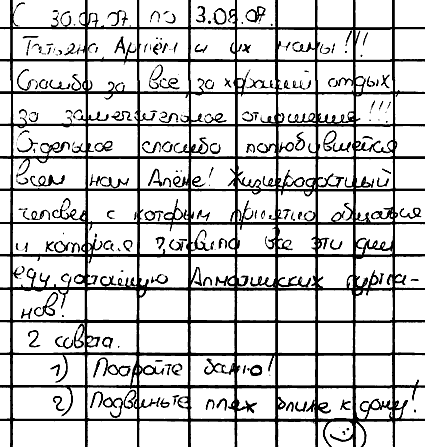 С 30.07.07. по 3.08.07.
Татьяна, Артём и их мамы!!!
Спасибо за все, за хороший отдых,
за замечательное отношение!!!
Отдельное спасибо полюбившейся
всем нам Алёне! Жизнерадостный
человек, с которым приятно общаться
и, которая готовила все эти дни
еду, достойную Алматинских гурма-
нов!
2 совета.
1) Постройте баню!
2) Подвиньте пляж ближе к дому!